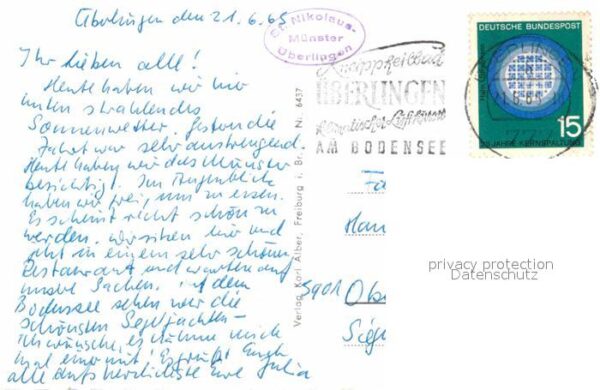 Überlingen den 21.6.65
Ihr lieben alle!
Heute haben wir hier
unten strahlendes
Sonnenwetter. Gestern die
Fahrt war sehr anstrengend.
Heute haben wir das Münster
besichtigt. Im Augenblick
haben wir frei, um zu essen.
Es scheint recht schön zu
werden. Wir sitzen hier und
in einem sehr schönen
Restaurant und warten auf
unsere Sachen. Auf dem
Bodensee sehen wir die
schönsten Segeljachten
Ich wünsche, es nähme mich
mal einer mit! Es grüßt Euch
alle aufs herzlichste Eure Julia
St. Nikolaus-
Münster
Überlingen
Kneippheilbad
ÜBERLINGEN
AM BODENSEE
DEUTSCHE BUNDESPOST
15
25 JAHRE KERNSPALTUNG
Verlag Karl Alber, Freiburg i. Br. Nr. 6437
Fa
Han
5901 Obe
Sieg
privacy protection
Datenschutz